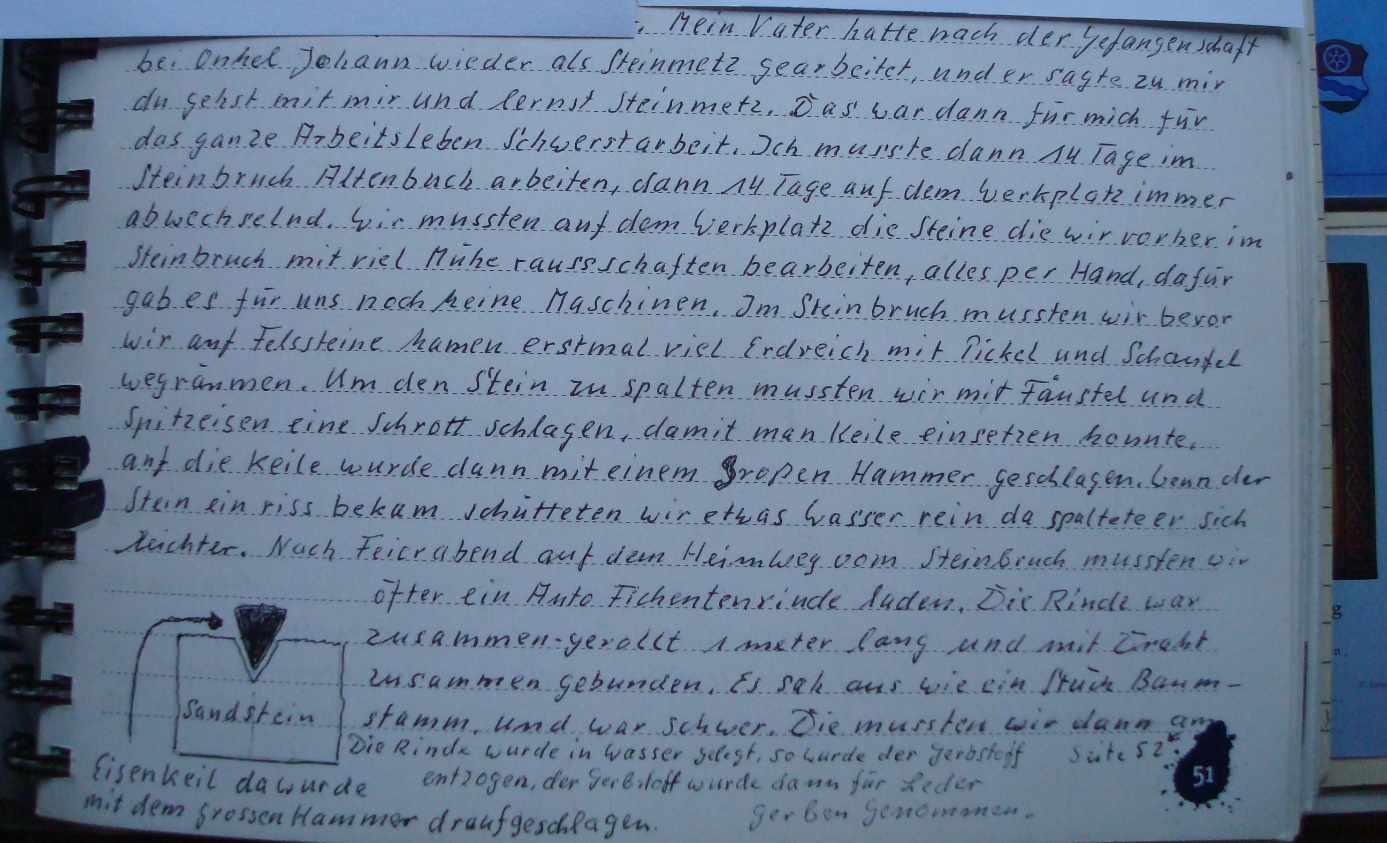 . Mein Vater hatte nach der Gefangenschaft
bei Onkel Johann wieder als Steinmetz gearbeitet, und er sagte zu mir
du gehst mit mir und lernst Steinmetz. Das war dann für mich für
das ganze Arbeitsleben Schwerstarbeit. Ich musste dann 14 Tage im
Steinbruch Altenbuch arbeiten, dann 14 Tage auf dem Werkplatz immer
abwechselnd. Wir mussten auf dem Werkplatz die Steine die wir vorher im
Steinbruch mit viel Mühe raussschaften bearbeiten, alles per Hand, dafür
gab es für uns noch keine Maschinen. Im Steinbruch mussten wir bevor
wir auf Felssteine kamen erstmal viel Erdreich mit Pickel und Schaufel
wegräumen. Um den Stein zu spalten mussten wir mit Fäustel und
Spitzeisen eine Schrott schlagen, damit man Keile einsetzen konnte.
auf die Keile wurde dann mit einem großen Hammer geschlagen. Wenn der
Stein ein riss bekam schütteten wir etwas Wasser rein da spaltete er sich
leichter. Nach Feierabend auf dem Heimweg vom Steinbruch mussten wir
öfter ein Auto Fichentenrinde laden. Die Rinde war
zusammen-gerollt 1 meter lang und mit Draht
zusammen gebunden. Es sah aus wie ein Stück Baum-
stamm, und war schwer. Die mussten wir dann am
Sandstein
Die Rinde wurde in Wasser gelegt, so wurde der Gerbstoff
entzogen, der Gerbstoff wurde dann für Leder
gerben Genommen.
Seite 52
Eisenkeil da wurde
mit dem grossen Hammer draufgeschlagen.
51
g